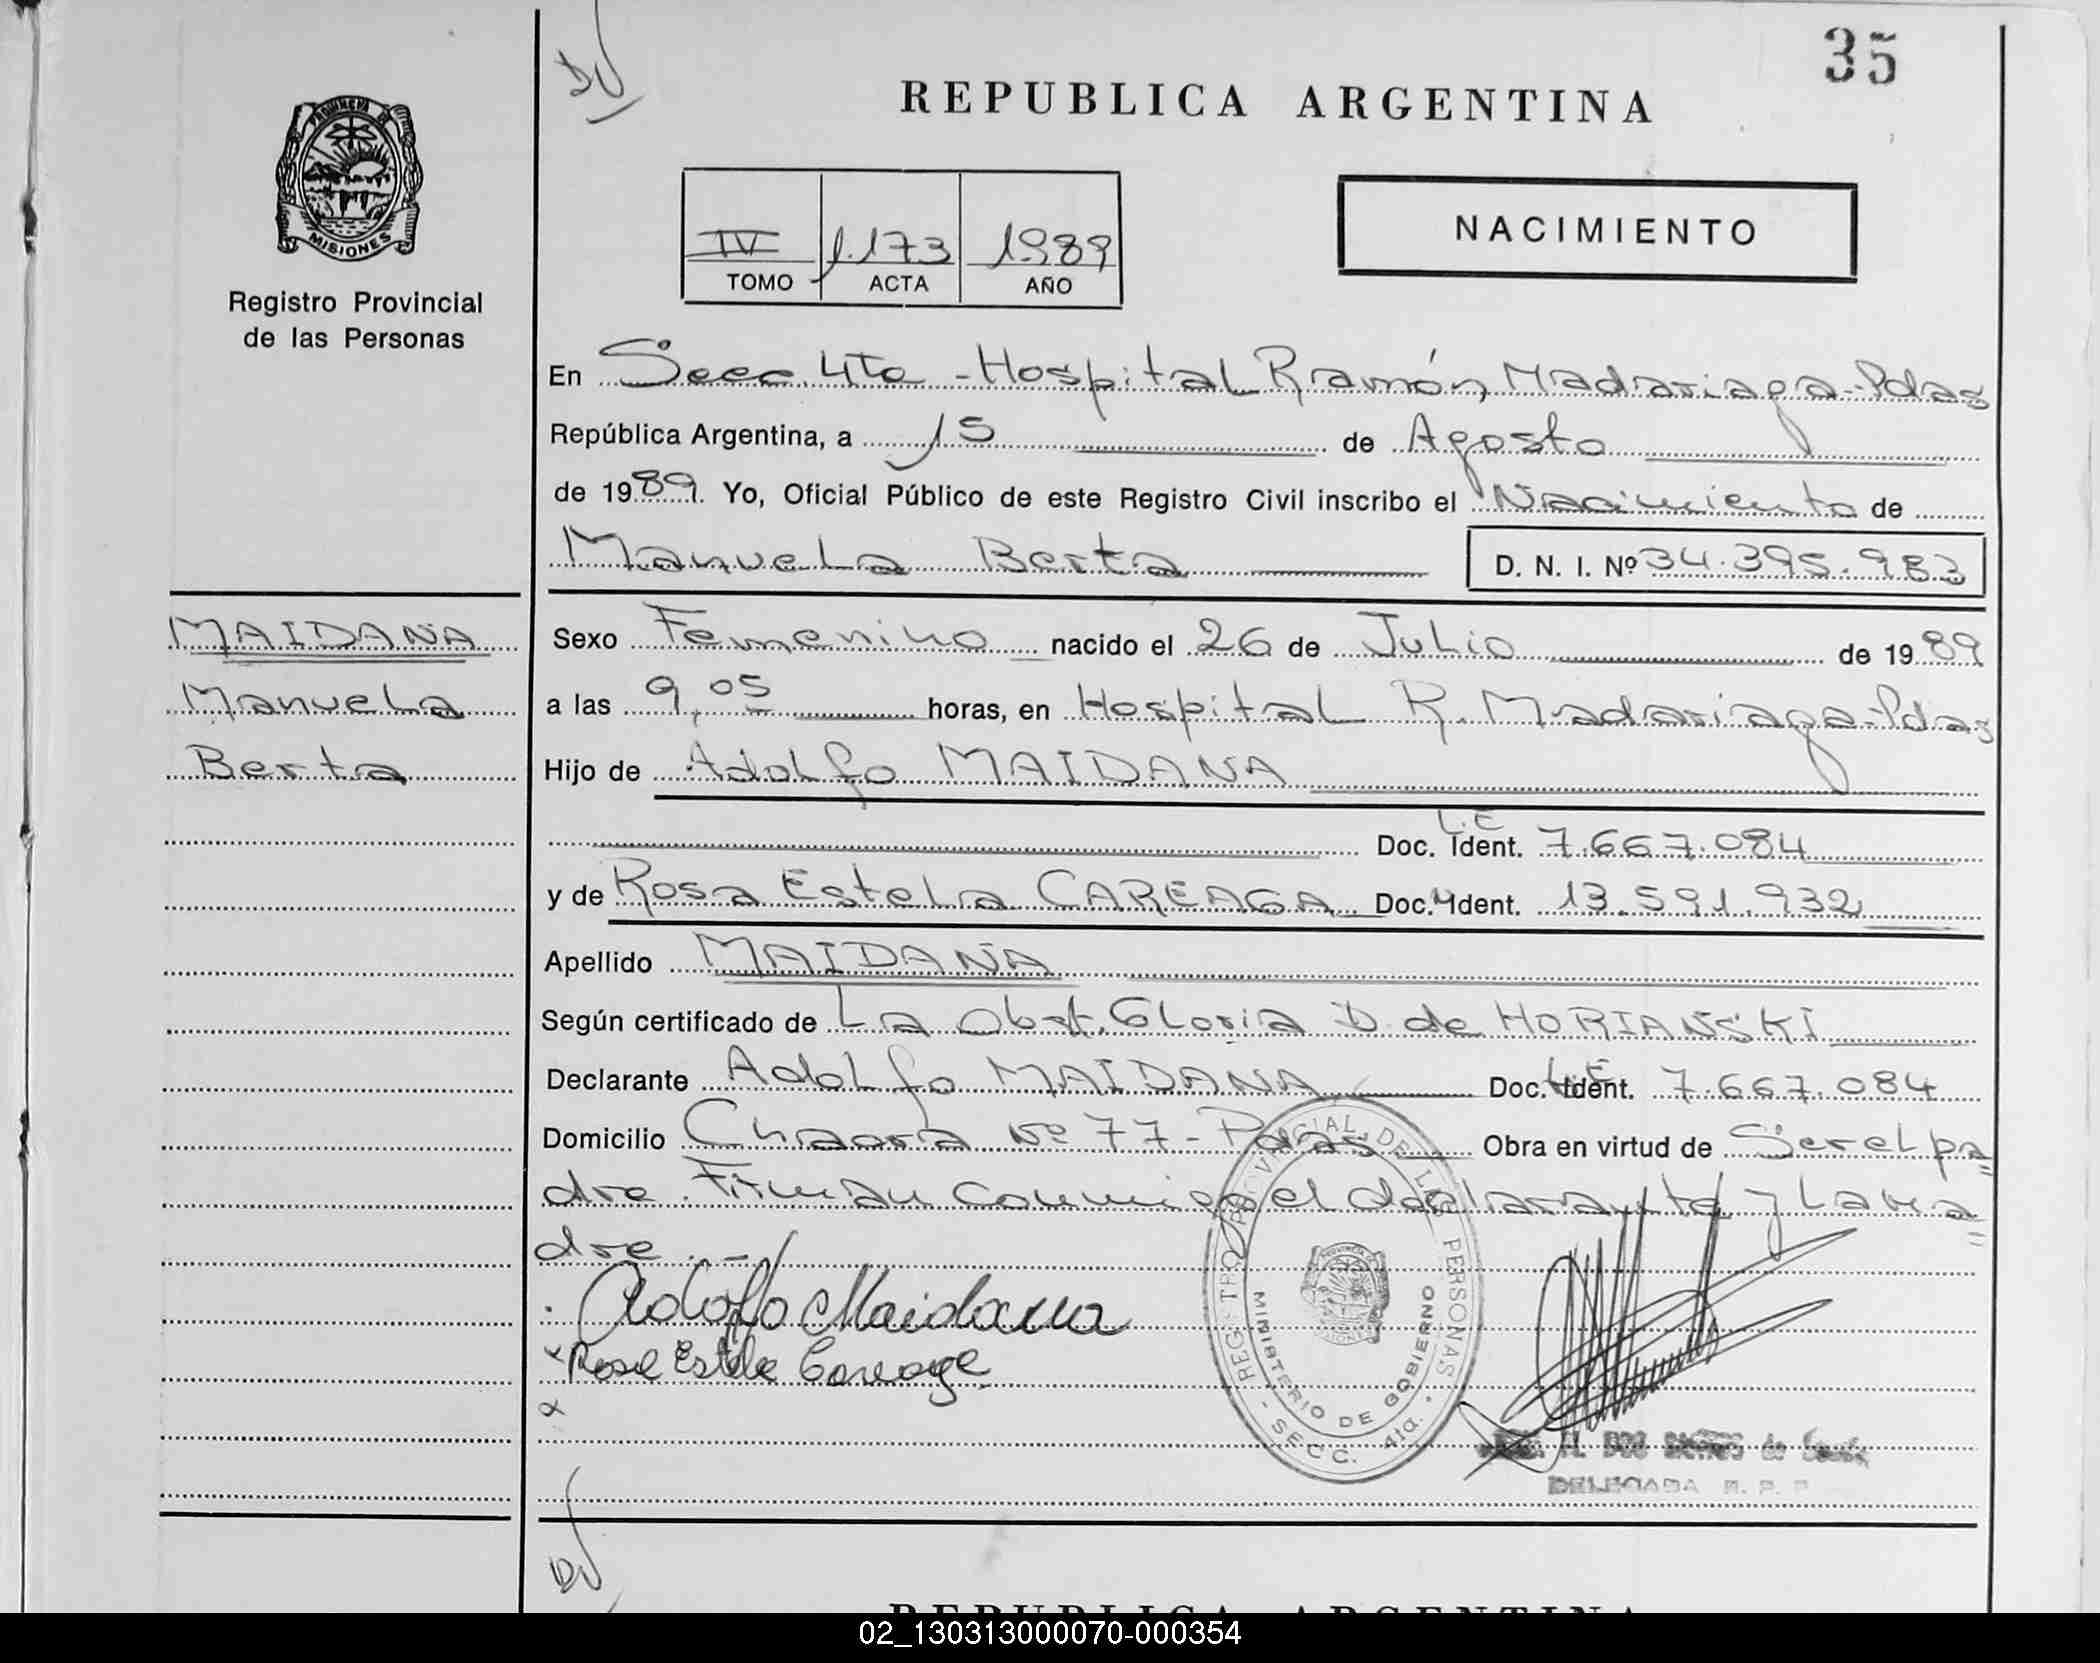 35
REPUBLICA ARGENTINA
PROVINCIA DE
MISIONES
Registro Provincial
de las Personas
IV 1.173 1989
TOMO ACTA AÑO
NACIMIENTO
En Secc. 4Ta - Hospital Ramón Madariaga - Pdas
República Argentina, a 15 de Agosto
de 1989. Yo, Oficial Público de este Registro Civil inscribo el Nacimiento de
Manuela Berta D. N. I. Nº 34.395.983
MAIDANA
Manuela
Berta
Sexo Femenino nacido el 26 de Julio de 1989
a las 9,05 horas, en Hospital R. Madariaga - Pdas
Hijo de Adolfo MAIDANA
Doc. Ident. L.E 7.667.084
y de Rosa Estela CAREAGA Doc. Ident. 13.591.932
Apellido MAIDANA
Según certificado de La Obst. Gloria D. de HORIANSKI
Declarante Adolfo MAIDANA Doc. Ident. L.E 7.667.084
Domicilio Chacra Nº 77 - Pdas Obra en virtud de Ser el pa=
dre. Firman conmigo el declarante y La ma=
dre. -
Adolfo Maidana
Rosa Estela Careaga
REGISTRO PROVINCIAL DE LAS PERSONAS
MINISTERIO DE GOBIERNO
- SECC. 4ta. -
DELEGADA R. P. P.
REPUBLICA ARGENTINA
02_130313000070-000354